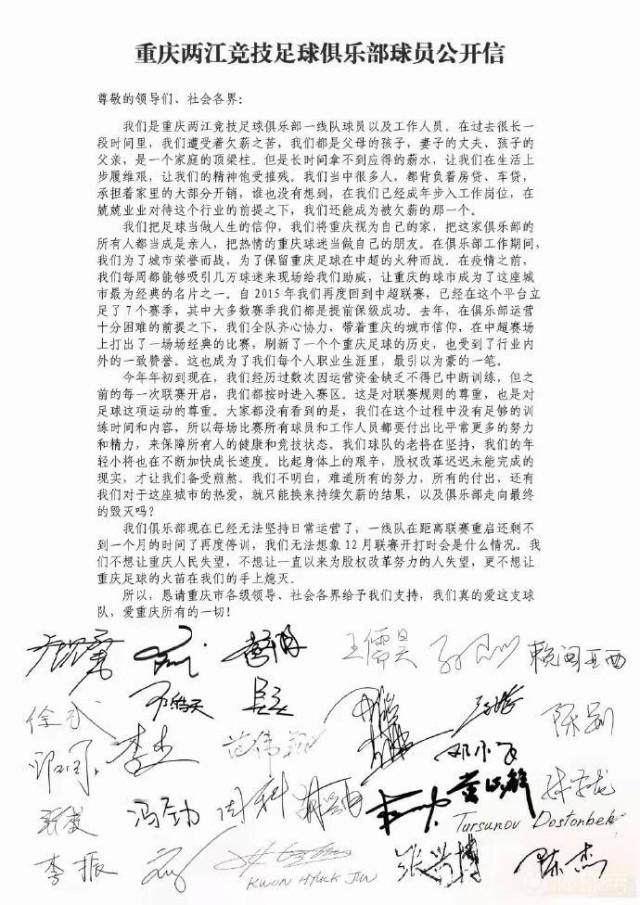 重庆两江竞技足球俱乐部球员公开信
尊敬的领导们、社会各界：
我们是重庆两江竞技足球俱乐部一线队球员以及工作人员。在过去很长一
段时间里，我们遭受着欠薪之苦，我们都是父母的孩子，妻子的丈夫、孩子的
父亲，是一个家庭的顶梁柱。但是长时间拿不到应得的薪水，让我们在生活上
步履维艰，让我们的精神饱受摧残。我们当中很多人，都背负着房贷、车贷，
承担着家里的大部分开销，谁也没有想到，在我们已经成年步入工作岗位，在
兢兢业业对待这个行业的前提之下，我们还能成为被欠薪的那一个。
我们把足球当做人生的信仰，我们将重庆视为自己的家，把这家俱乐部的
所有人都当成是亲人，把热情的重庆球迷当做自己的朋友。在俱乐部工作期间，
我们为了城市荣誉而战，为了保留重庆足球在中超的火种而战。在疫情之前，
我们每周都能够吸引几万球迷来现场给我们助威，让重庆的球市成为了这座城
市最为经典的名片之一。自 2015 年我们再度回到中超联赛，已经在这个平台立
足了 7 个赛季，其中大多数赛季我们都是提前保级成功。去年，在俱乐部运营
十分困难的前提之下，我们全队齐心协力，带着重庆的城市信仰，在中超赛场
上打出了一场场经典的比赛，刷新了一个个重庆足球的历史，也受到了行业内
外的一致赞誉。这也成为了我们每个人职业生涯里，最引以为豪的一笔。
今年年初到现在，我们经历过数次因运营资金缺乏不得已中断训练，但之
前的每一次联赛开启，我们都按时进入赛区。这是对联赛规则的尊重，也是对
足球这项运动的尊重。大家都没有看到的是，我们在这个过程中没有足够的训
练时间和内容，所以每场比赛所有球员和工作人员都要付出比平常更多的努力
和精力，来保障所有人的健康和竞技状态。我们球队的老将在坚持，我们的年
轻小将也在不断加快成长速度。比起身体上的艰辛，股权改革迟迟未能完成的
现实，才让我们备受煎熬。我们不明白，难道所有的努力，所有的付出，还有
我们对于这座城市的热爱，就只能换来持续欠薪的结果，以及俱乐部走向最终
的毁灭吗？
我们俱乐部现在已经无法坚持日常运营了，一线队在距离联赛重启还剩不
到一个月的时间了再度停训，我们无法想象 12 月联赛开打时会是什么情况。我
们不想让重庆人民失望，不想让一直以来为股权改革努力的人失望，更不想让
重庆足球的火苗在我们的手上熄灭。
所以，恳请重庆市各级领导、社会各界给予我们支持，我们真的爱这支球
队，爱重庆所有的一切！
王儒昊
邓小飞
冯劲 周科
Tursunov Dostonbek
李振 KWON HYUCK JIN 张兴博 陈杰